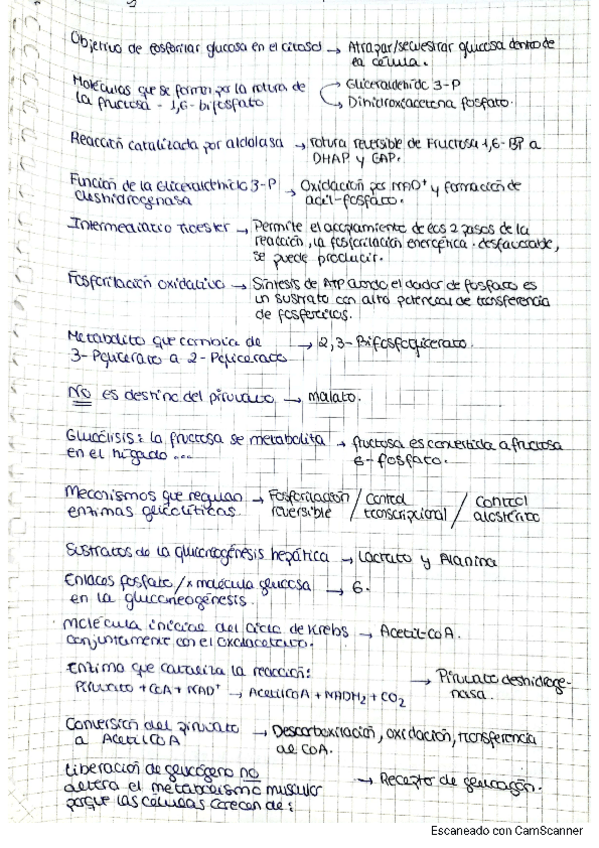 Objetivo de fosforilar glucosa en el citosol → Atrapar/secuestrar glucosa dentro de
la célula.
Moléculas que se forman por la rotura de → Gliceraldehído 3-P
la fructosa - 1,6-bifosfato → Dihidroxiacetona fosfato.
Reacción catalizada por aldolasa → rotura reversible de Fructosa 1,6-BP a
DHAP y GAP.
Función de la Gliceraldehído 3-P → Oxidación por NAD⁺ y formación de
deshidrogenasa acil-fosfato.
Intermediario tioester → Permite el acoplamiento de los 2 pasos de la
reacción, la fosforilación energética. desfavorable,
se puede producir.
Fosforilación oxidativa → Síntesis de ATP cuando el dador de fosfato es
un sustrato con alto potencial de transferencia
de fosforilos.
Metabolito que cambia de → 2,3-Bifosfoglicerato.
3-Pglicerato a 2-Pglicerato
NO es destino del piruvato → malato.
Glucólisis: la fructosa se metaboliza → fructosa es convertida a fructosa
en el hígado ... 6-fosfato.
Mecanismos que regulan → Fosforilación / Control / Control
enzimas glicolíticas. reversible / transcripcional / alostérico
Sustratos de la gluconeogénesis hepática → Lactato y Alanina
Enlaces fosfato / x molécula glucosa → 6.
en la gluconeogénesis.
Molécula inicial del ciclo de Krebs → Acetil-CoA.
conjuntamente con el oxalacetato.
Enzima que cataliza la reacción: → Piruvato deshidroge-
Piruvato + CoA + NAD⁺ → AcetilCoA + NADH₂ + CO₂ nasa.
Conversión del piruvato → Descarboxilación, oxidación, transferencia
a AcetilCoA de CoA.
Liberación de glucógeno no
altera el metabolismo muscular → Receptor de glucagón.
porque las células carecen de:
Escaneado con CamScanner